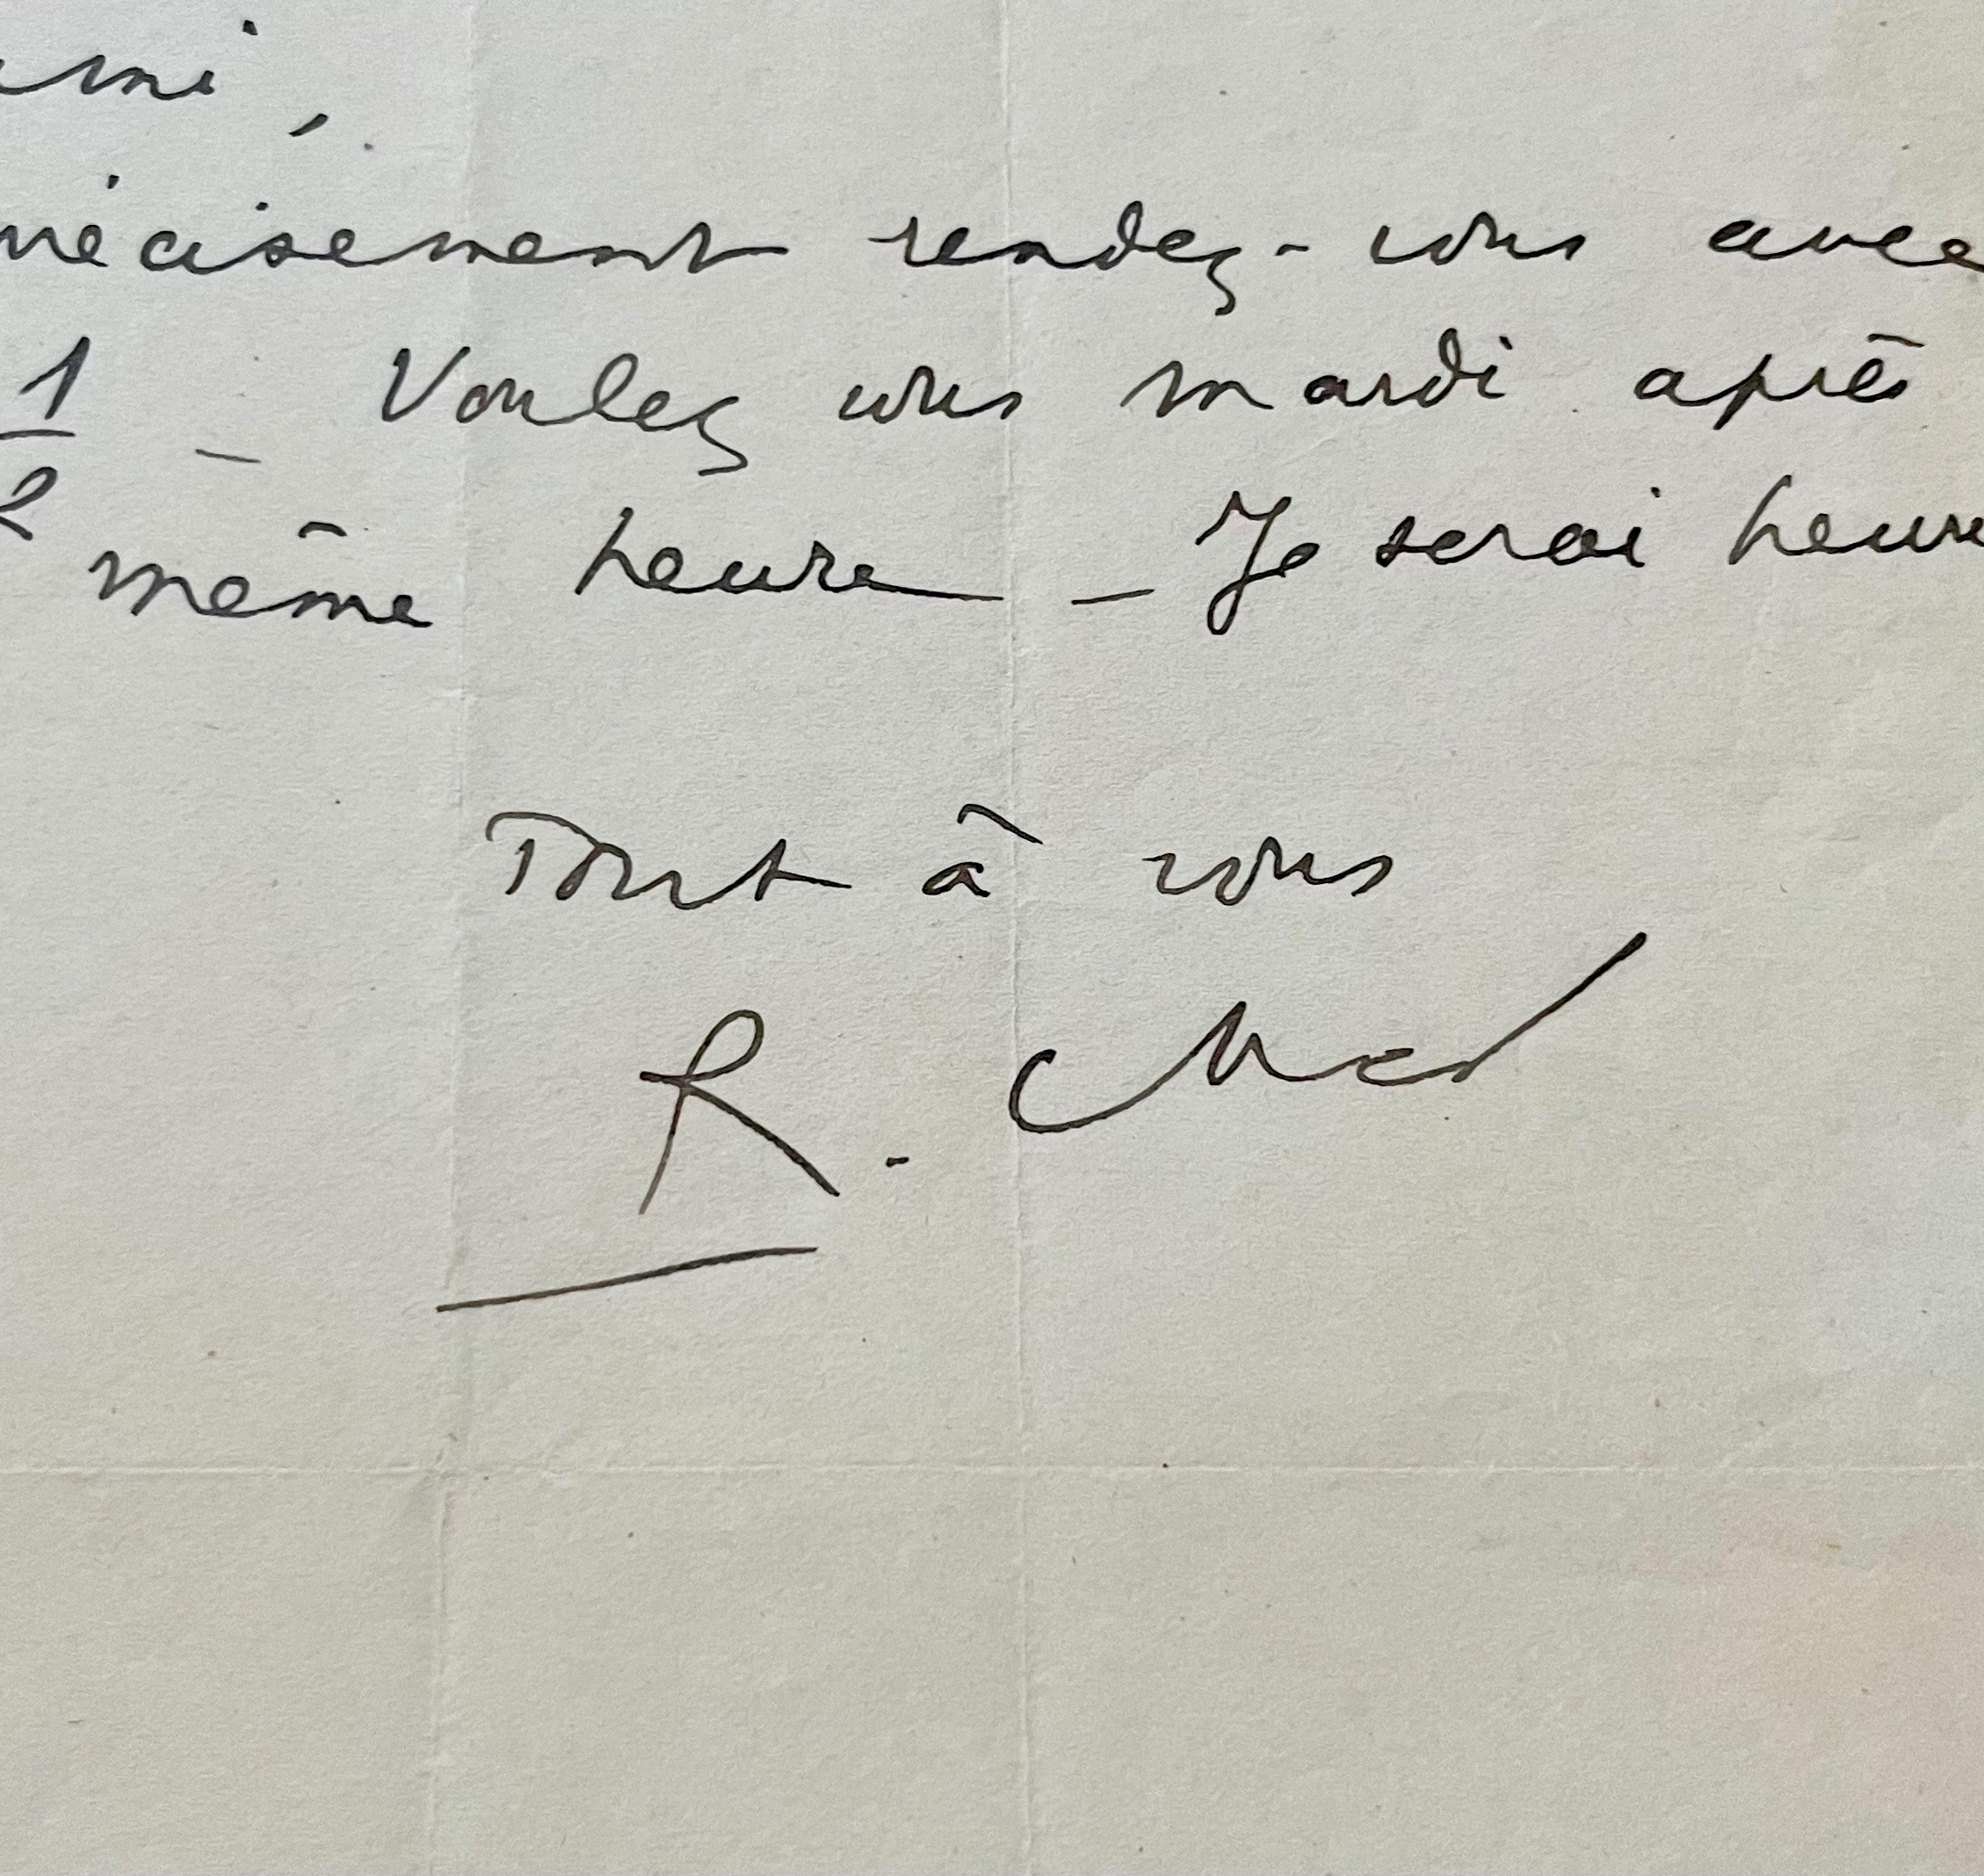 ami,
précisement rendez-vous avec
1/2 – Voulez vous mardi après
même heure – Je serai heure
Tout à vous
R.